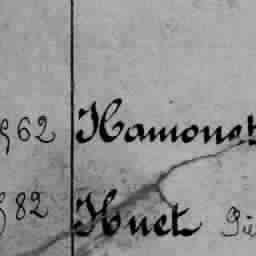 962 Hamonet
82 Huet